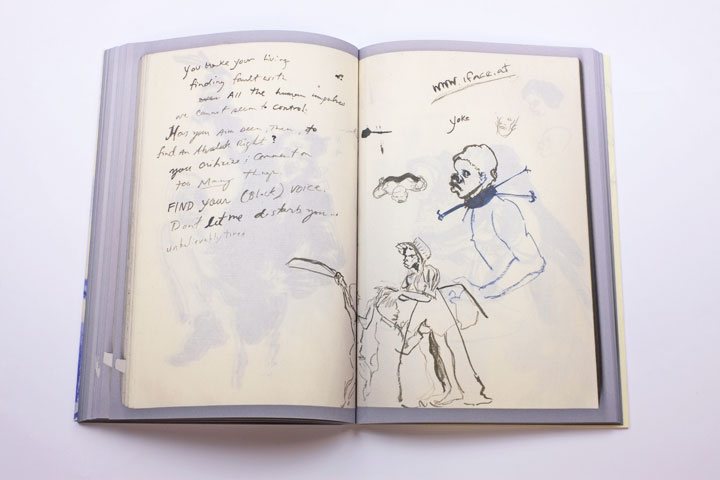 You make your living
finding fault with
over All the human impulses
we cannot seem to control.
Has your Aim been, then, to
find An Absolute Right?
you Criticize; Comment on
too Many things
FIND your (Black) voice.
Don't let me disturb you..
unbelievably tired
www.iface.at
Yoke